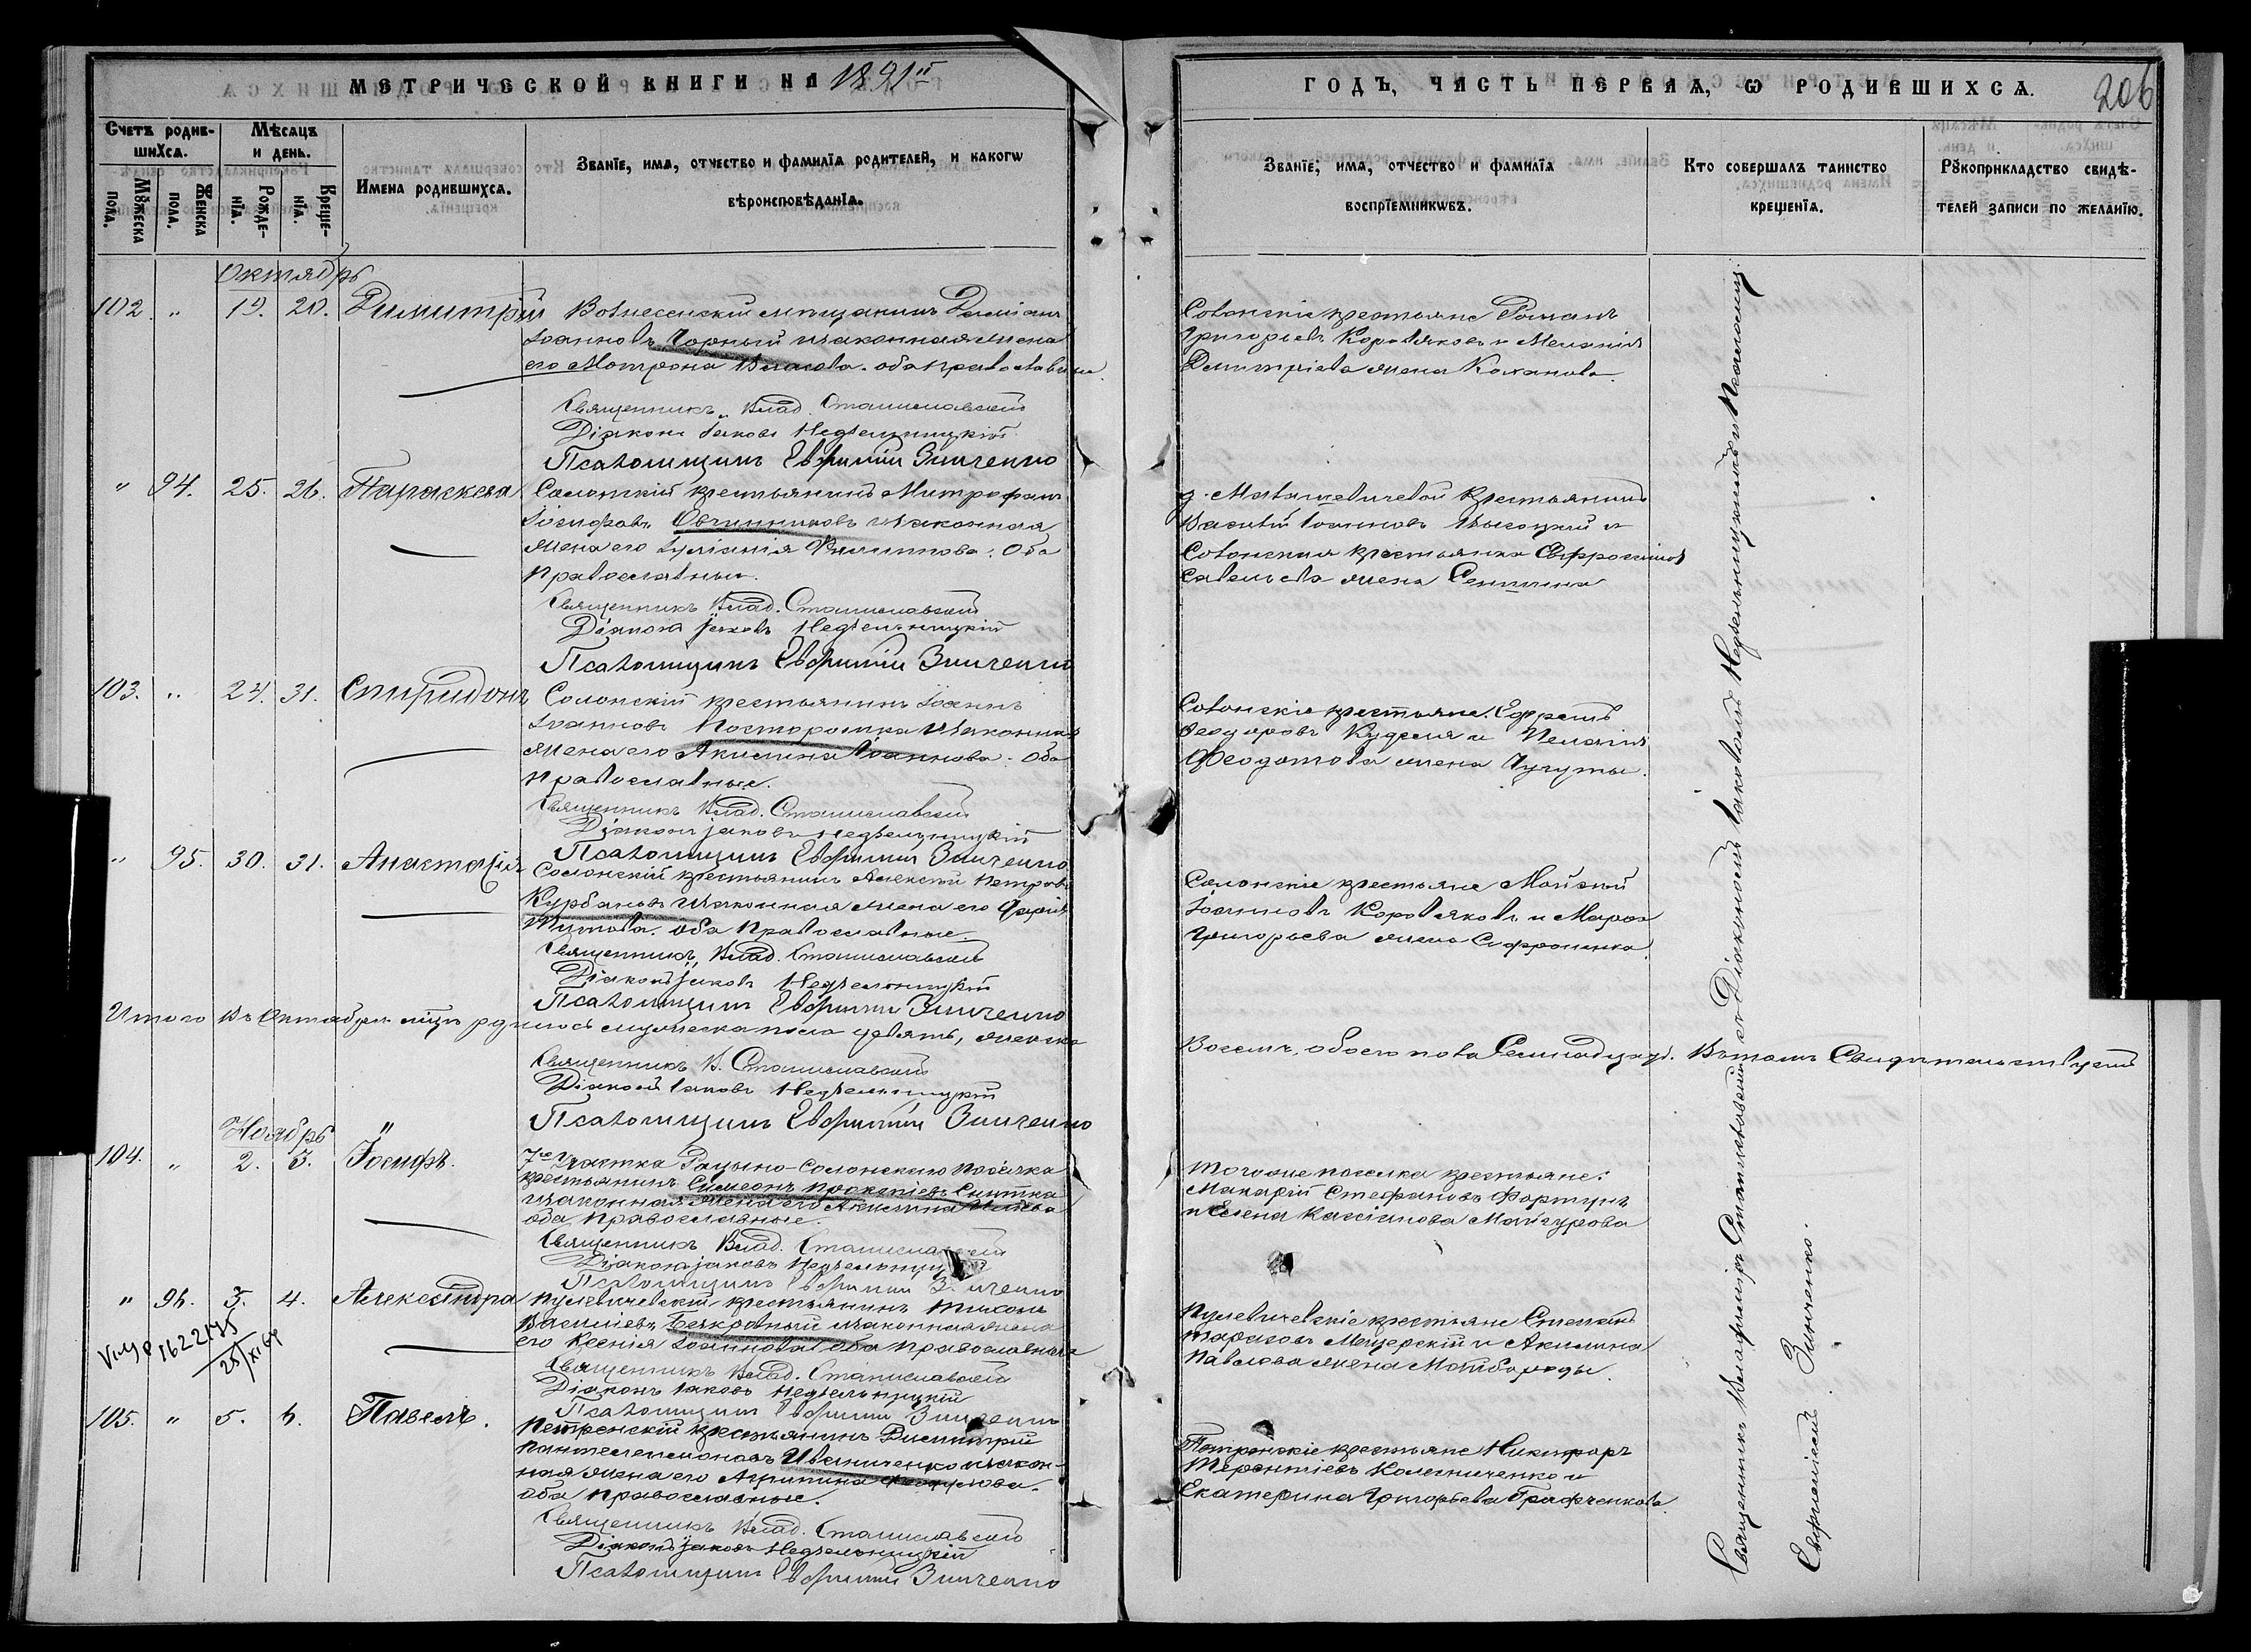 МЕТРИЧЕСКОЙ КНИГИ НА 1891й
ГОДЪ, ЧАСТЬ ПЕРВАЯ, Ѡ РОДИВШИХСЯ.
206
Счетъ родив-
шихся.
Мѣсяцъ
и день.
Имена родившихся.
Званїе, имя, отчество и фамилїя родителей, и какогѡ
вѣроисповѣданїя.
Мꙋжеска
пола.
Женска
пола.
Рожде-
нїя.
Креще-
нїя.
Званїе, имя, отчество и фамилїя
воспрїемникѡвъ.
Кто совершалъ таинство
крещенїя.
Рꙋкоприкладство свидѣ-
телей записи по желанїю.
Октябрь
102. " 19. 20. Димитрій
Вознесенскій мѣщанинъ Даміанъ
Іоанновъ Чорный и законная жена
его Мотрона Власова. оба православные.
Священникъ Влад. Станиславскій
Діаконъ Іаковъ Недѣльницкій
Псаломщикъ Евфимій Зинченко
Солонскіе крестьяне Романъ
Григорьевъ Коровяковъ и Меланія
Димитріева жена Коханова.
" 94. 25. 26. Параскева
Солонскій крестьянинъ Митрофанъ
Іосифовъ Овчинниковъ и законная
жена его Іуліанія Филиппова. Оба
православные.
Священникъ Влад. Станиславскій
Діаконъ Іаковъ Недѣльницкій
Псаломщикъ Евфимій Зинченко
крестьянинъ
Василій Іоанновъ Высоцкій и
Солонская крестьянка Евфросинія
Савельева жена
103. " 24. 31. Спиридонъ
Солонскій крестьянинъ Іоаннъ
Іоанновъ Посторомка и законная
жена его Акилина Іоаннова. Оба
православные.
Священникъ Влад. Станиславскій
Діаконъ Іаковъ Недѣльницкій
Псаломщикъ Евфимій Зинченко
Солонскіе крестьяне Ефремъ
Ѳеодоровъ Куделя и Пелагія
Ѳеодотова жена Чучупы.
" 95. 30. 31. Анастасія
Солонскій крестьянинъ Алексій Петровъ
Курбановъ и законная жена его Дарія
Титова. оба православные.
Священникъ Влад. Станиславскій
Діаконъ Іаковъ Недѣльницкій
Псаломщикъ Евфимій Зинченко
Солонскіе крестьяне Мойсей
Іоанновъ Коровяковъ и Марѳа
Григорьева жена Сафроненка.
Итого въ Октябрѣ м͞цѣ родилось мужеска пола девять, женска
восемь, обоего пола семнадцать. Въ томъ свидѣтельствуемъ
Священникъ В. Станиславскій
Діаконъ Іаковъ Недѣльницкій
Псаломщикъ Евфимій Зинченко
Ноябрь
104. " 2. 3. Іосифъ.
7го участка Рацыно-Солонского посёлка
крестьянинъ Симеонъ Прокопіевъ Снитка
и законная жена его Акилина
оба православные.
Священникъ Влад. Станиславскій
Діаконъ Іаковъ Недѣльницкій
Псаломщикъ Евфимій Зинченко
Того же поселка крестьяне:
Макарій Стефановъ Фортунъ
и Елена Касіанова Майгурова
" 96. 3. 4. Александра
Пузевичевскій крестьянинъ Тихонъ
Василіевъ Безкровный и законная жена
его Ксенія Іоаннова. Оба православные
Священникъ Влад. Станиславскій
Діаконъ Іаковъ Недѣльницкій
Псаломщикъ Евфимій Зинченко
Стефанъ
Тарасовъ Мещерскій и Акилина
Павлова жена Майбороды.
1622175
25/XI 69
105. " 5. 6. Павелъ.
Петренскій крестьянинъ Димитрій
Пантелеимоновъ Иваниченко и закон-
ная жена его Агрипина
оба православные.
Священникъ Влад. Станиславскій
Діаконъ Іаковъ Недѣльницкій
Псаломщикъ Евфимій Зинченко
Петренскіе крестьяне Никифоръ
Терентіевъ Колесниченко и
Екатерина Григорьева Графченкова.
Священникъ Владиміръ Станиславскій съ Діакономъ Іаковомъ Недѣльницкимъ и Псаломщ.
Евфиміемъ Зинченко.